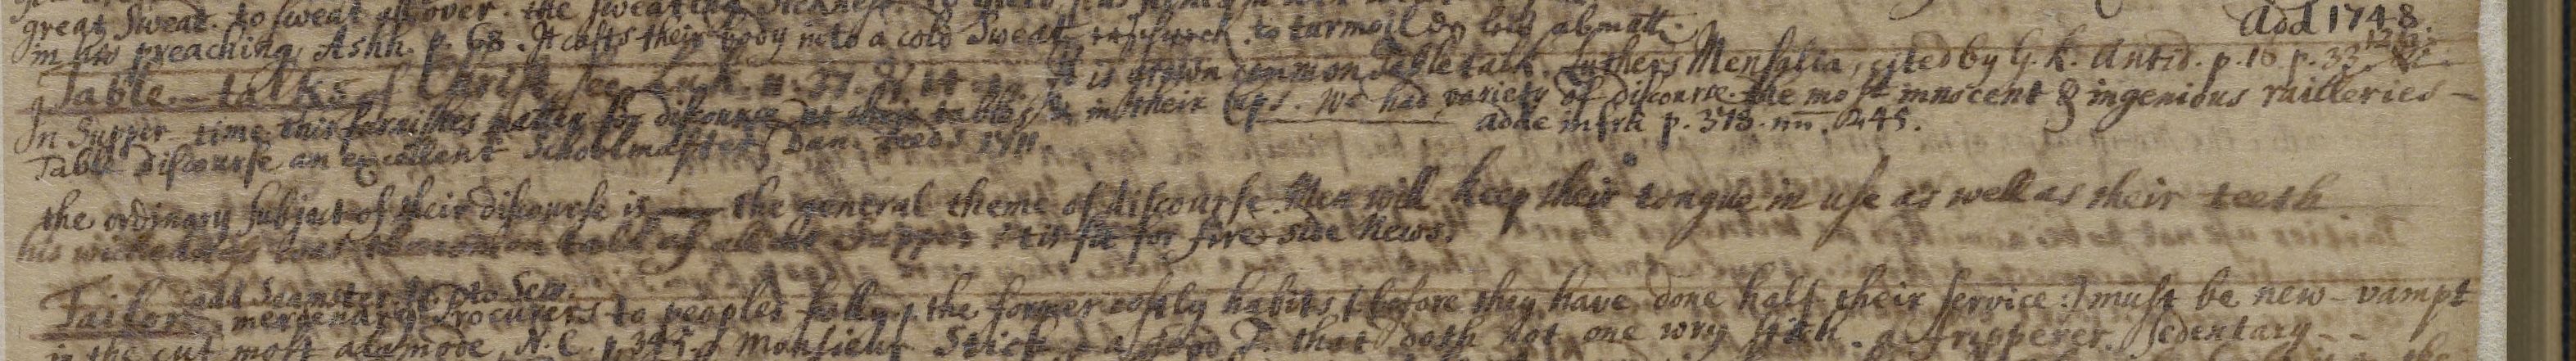 great Sweat. to sweat all over. the sweating Sickness.
add 1748.
in his preaching, Ashh. p. 68. It casts their body into a cold Sweat, to turmoil
Table-talks of Christ see Luk. It is grown common Table talk. Luthers Mensalia, cited by G. K. Antid. p. 16. p. 33.
In Supper time this furnishes matter for discourse at their tables & in their Cups. We had variety of discourse the most innocent & ingenious railleries –
adde p. 378. 245.
Table discourse an excellent Schoolmaster, Dan. Leeds 1711.
the ordinary subject of their discourse is the general theme of discourse. Men will keep their tongue in use as well as their teeth.
his wickedness was the common talk of all at Supper it is fit for fire-side News.
add Seamster. to Sew.
Tailors, mercenary Procurers to peoples folly, the former costly habits (before they have done half their service) must be new-vampt
in the cut most alamode, N. C. p. 345. Monsieur Stitch a good T. that doth not one wry stitch. a fripperer. Sedentary –